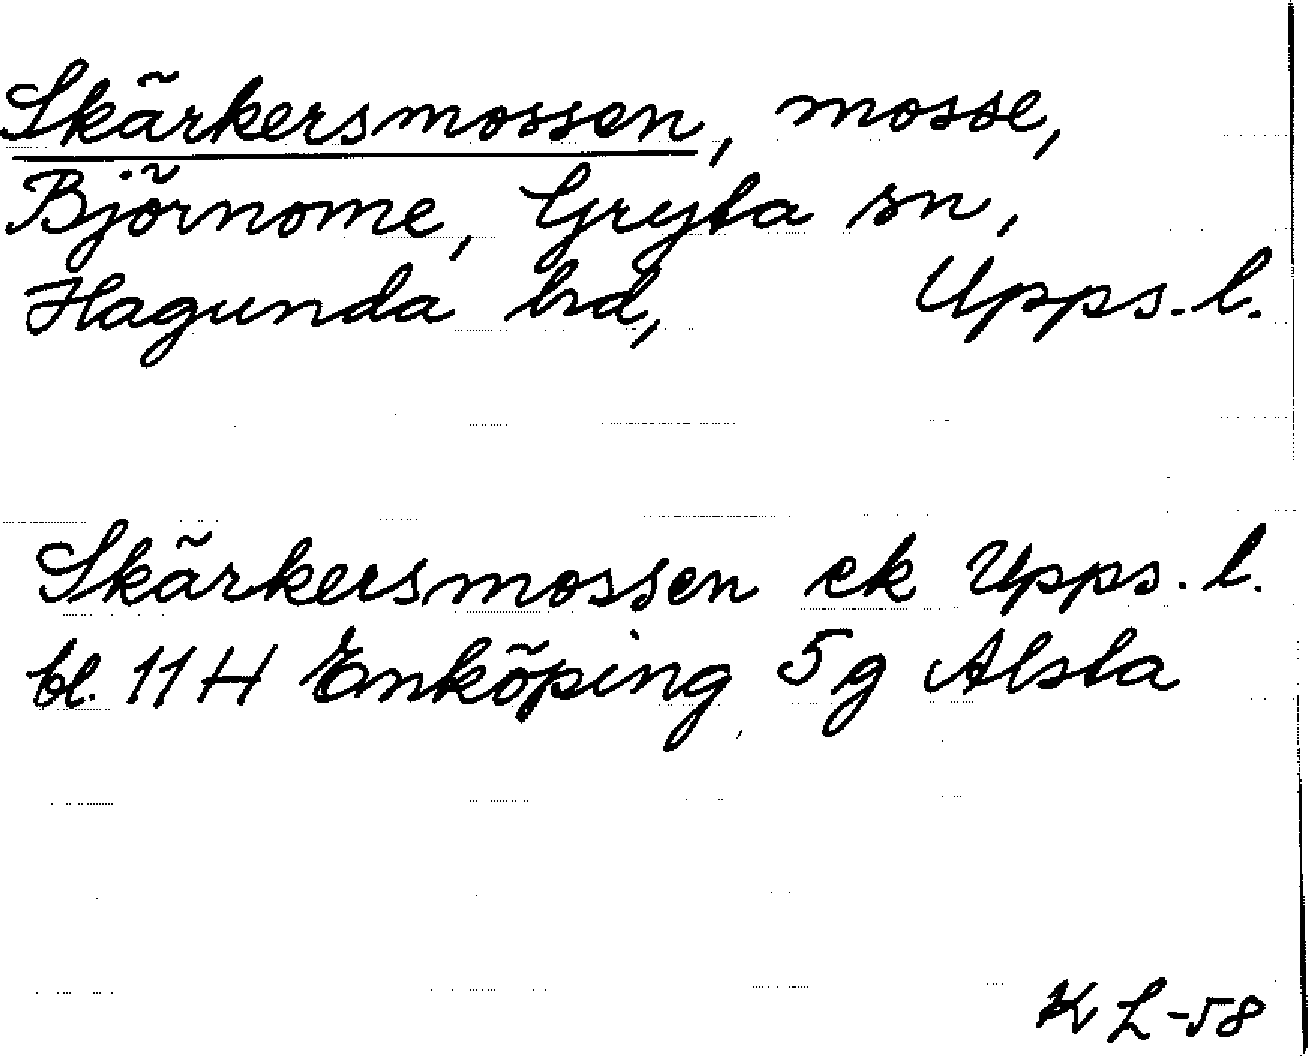 Skärkersmossen, mosse,
Björnome, Gryta sn,
Hagunda hd, Upps. l.
Skärkersmossen ek Upps. l.
bl. 11 H Enköping 5g Alsta
KL-58